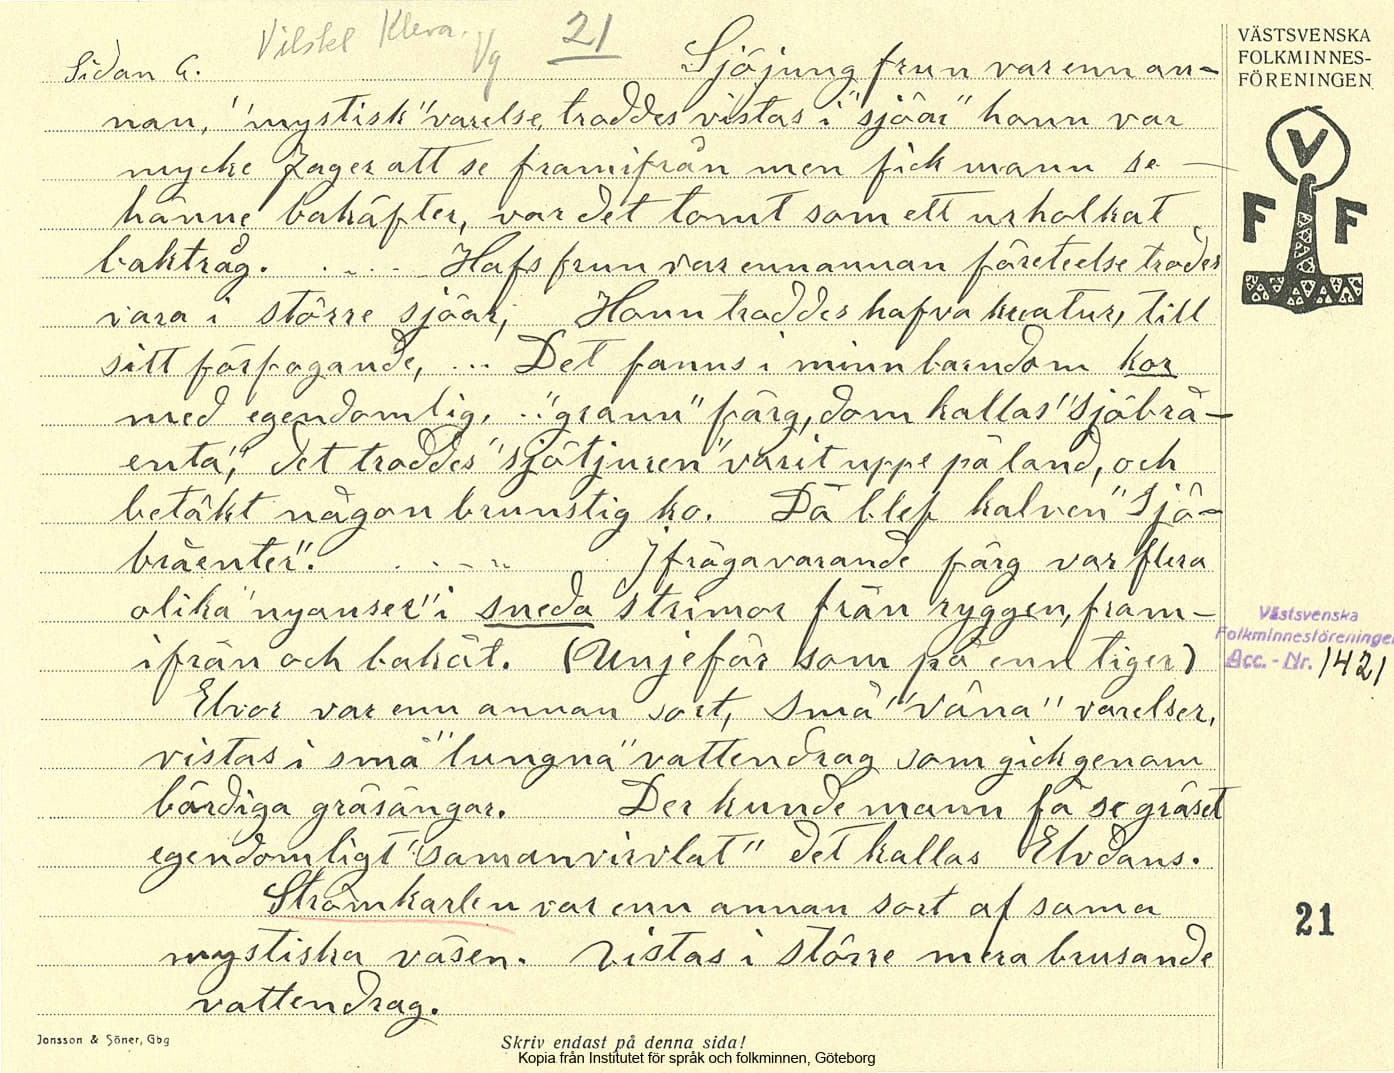 Vilske Kleva. Vg 21
Sidan 6. Sjöjungfrun var enn an-
nan, "mystisk" varelse, troddes vistas i "sjöar" honn var
mycke fager att se framifrån men fick mann se
hänne bakäfter, var det tomt som ett urholkat
baktråg. . . - . . Hafsfrun var enn annan företeelse troddes
vara i större sjöar, Honn troddes hafva kreatur, till
sitt förfogande, ... Det fanns i minn barndom kor
med egendomlig, .. "grann" färg, dom kallas "sjöbrå-
enta", det troddes "sjötjuren" varit uppe på land, och
betäkt någon brunstig ko. Då blef kalven "sjö-
bråenter". . . - . . I frågavarande färg var flera
olika "nyanser" i sneda strimor från ryggen, fram-
ifrån och bakåt. (Unjefär som på enn tiger)
Elvor var enn annan sort, små "våna" varelser,
vistas i små "lungna" vattendrag som gick genom
bördiga gräsängar. Der kunde mann få se gräset
egendomligt "samanvirvlat" det kallas Elvdans.
Strömkarlen var enn annan sort af sama
mystiska väsen. Vistas i större mera brusande
vattendrag.
VÄSTSVENSKA
FOLKMINNES-
FÖRENINGEN
V
F F
Västsvenska
Folkminnesföreningen
Acc.-Nr. 1421
21
Jonsson & Söner, Gbg
Skriv endast på denna sida!
Kopia från Institutet för språk och folkminnen, Göteborg